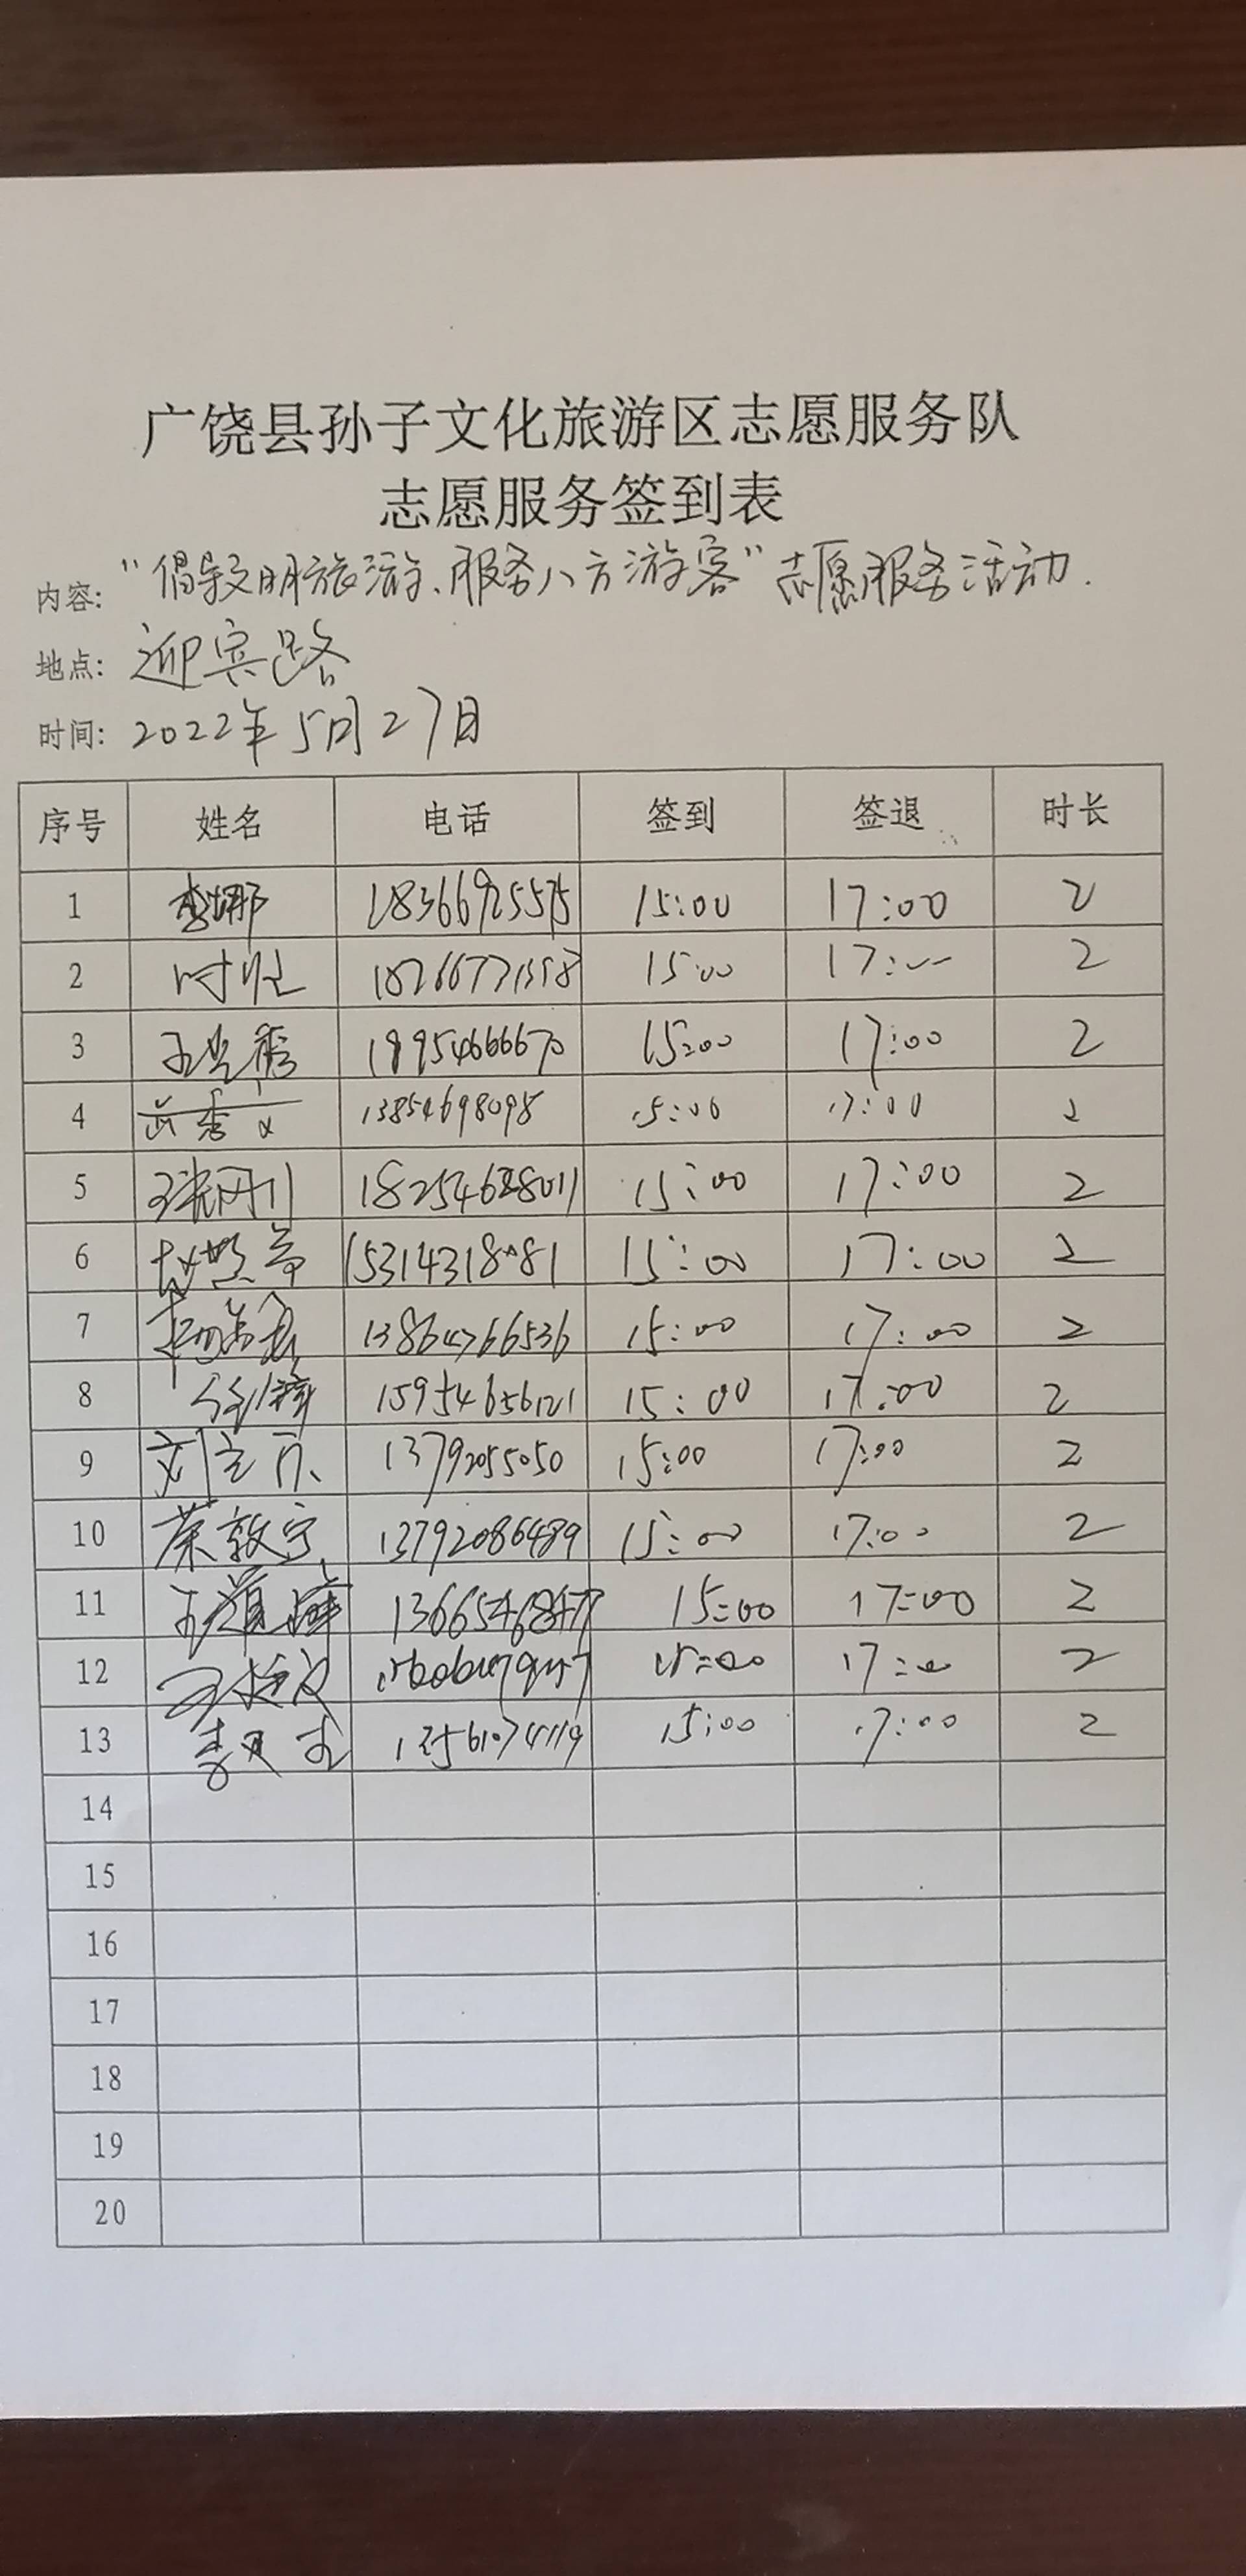 广饶县孙子文化旅游区志愿服务队
志愿服务签到表
内容: “倡导文明旅游、服务八方游客”志愿服务活动.
地点: 迎宾路
时间: 2022年5月27日
序号 姓名 电话 签到 签退 时长
1 李娜 18366925575 15:00 17:00 2
2 15:00 17:00 2
3 18954666670 15:00 17:00 2
4 13854698098 15:00 17:00 2
5 15:00 17:00 2
6 15314318081 15:00 17:00 2
7 13864766536 15:00 17:00 2
8 15954656121 15:00 17:00 2
9 13792055050 15:00 17:00 2
10 荣敦宁 13792086489 15:00 17:00 2
11 15:00 17:00 2
12 15:00 17:00 2
13 15:00 17:00 2
14
15
16
17
18
19
20